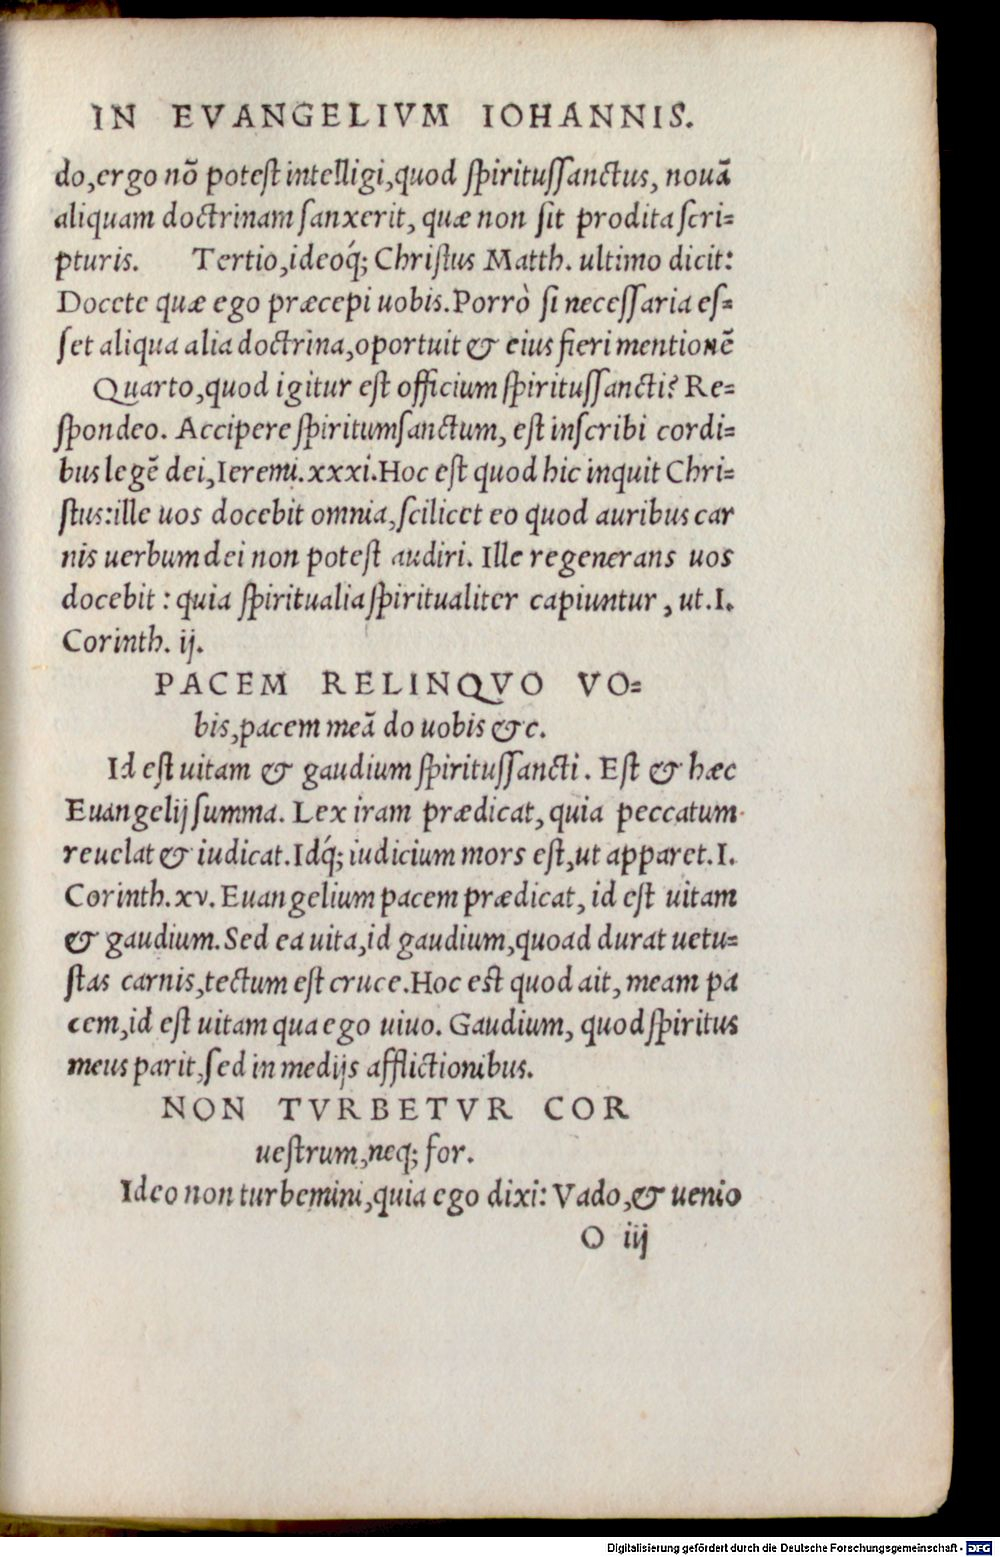 IN EVANGELIVM IOHANNIS.
do, ergo nõ potest intelligi, quod spiritussanctus, nouã
aliquam doctrinam sanxerit, quæ non sit prodita scri=
pturis. Tertio, ideoq́; Christus Matth. ultimo dicit:
Docete quæ ego præcepi uobis. Porrò si necessaria es=
set aliqua alia doctrina, oportuit & eius fieri mentionẽ
Quarto, quod igitur est officium spiritussancti? Re=
spondeo. Accipere spiritumsanctum, est inscribi cordi=
bus legẽ dei, Ieremi. xxxi. Hoc est quod hic inquit Chri=
stus: ille uos docebit omnia, scilicet eo quod auribus car
nis uerbum dei non potest audiri. Ille regenerans uos
docebit: quia spiritualia spiritualiter capiuntur, ut. I.
Corinth. ij.
PACEM RELINQVO VO=
bis, pacem meã do uobis &c.
Id est uitam & gaudium spiritussancti. Est & hæc
Euangelij summa. Lex iram prædicat, quia peccatum
reuelat & iudicat. Idq́; iudicium mors est, ut apparet. I.
Corinth. xv. Euangelium pacem prædicat, id est uitam
& gaudium. Sed ea uita, id gaudium, quoad durat uetu=
stas carnis, tectum est cruce. Hoc est quod ait, meam pa
cem, id est uitam qua ego uiuo. Gaudium, quod spiritus
meus parit, sed in medijs afflictionibus.
NON TVRBETVR COR
uestrum, neq; for.
Ideo non turbemini, quia ego dixi: Vado, & uenio
O iij
Digitalisierung gefördert durch die Deutsche Forschungsgemeinschaft - DFG